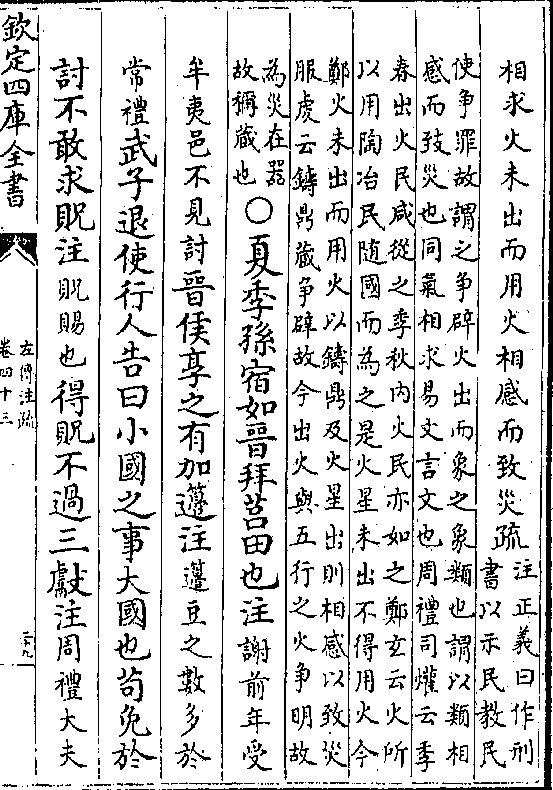 相求火未出而用火相感而致災疏
注正義曰作刑
書以示民教民
使争罪故謂之争辟火出而象之象類也謂以類相
感而致災也同氣相求易文言文也周禮司爟云季
春出火民咸從之季秋内火民亦如之鄭玄云火所
以用陶冶民随國而為之是火星未出不得用火今
鄭火未出而用火以鑄鼎及火星出則相感以致災
服虔云鑄鼎蔵争辟故今出火與五行之火争明故
為災在器
故稱蔵也
〇夏季孫宿如晉拜莒田也注謝前年受
牟夷邑不見討晉侯享之有加籩注籩豆之數多於
常禮武子退使行人告曰小國之事大國也苟免於
討不敢求貺注貺賜也得貺不過三獻注周禮大夫
欽定四庫全書
左傳注疏
卷四十三
三十九